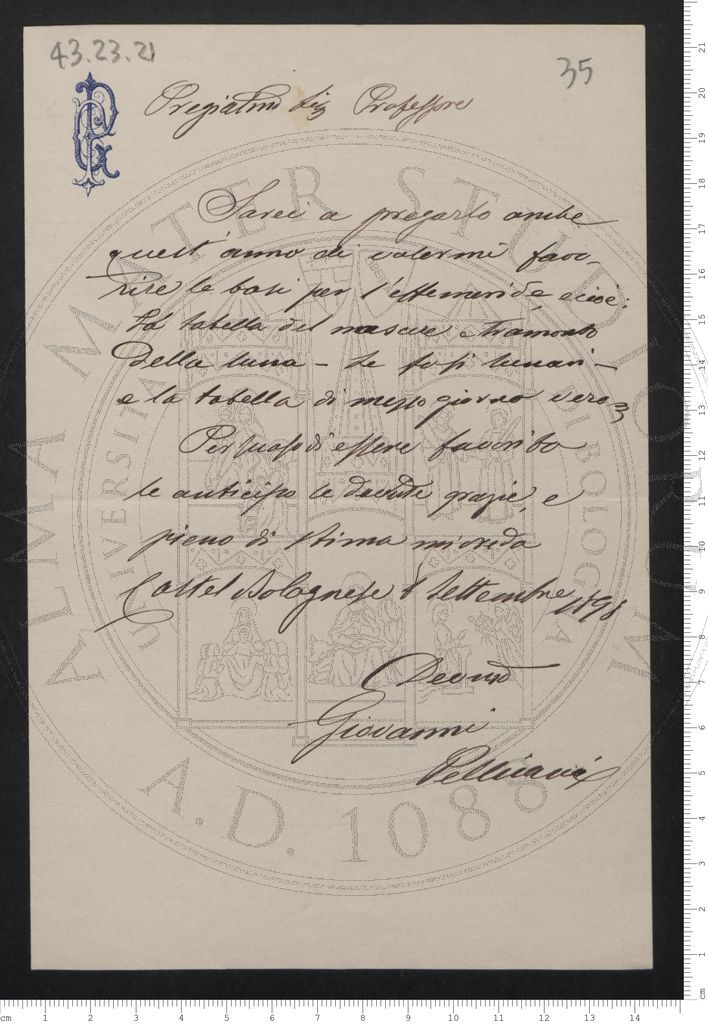 43.23.21
35
PG
Pregiatmo Sig Professore
Sarei a pregarlo anche
quest'anno di volermi favo-
rire le basi per l'effemeride, cioè:
La tabella del nascere e tramonto
della luna - Le fasi lunari -
e la tabella di mezzogiorno vero
Persuaso di essere favorito
le anticipo le dovute grazie, e
pieno di stima mi creda
Castel Bolognese 8 Settembre 1898
Devmo
Giovanni
Pelliciari
ALMA MATER STUDIORUM
UNIVERSITA BOLOGNA
A.D. 1088